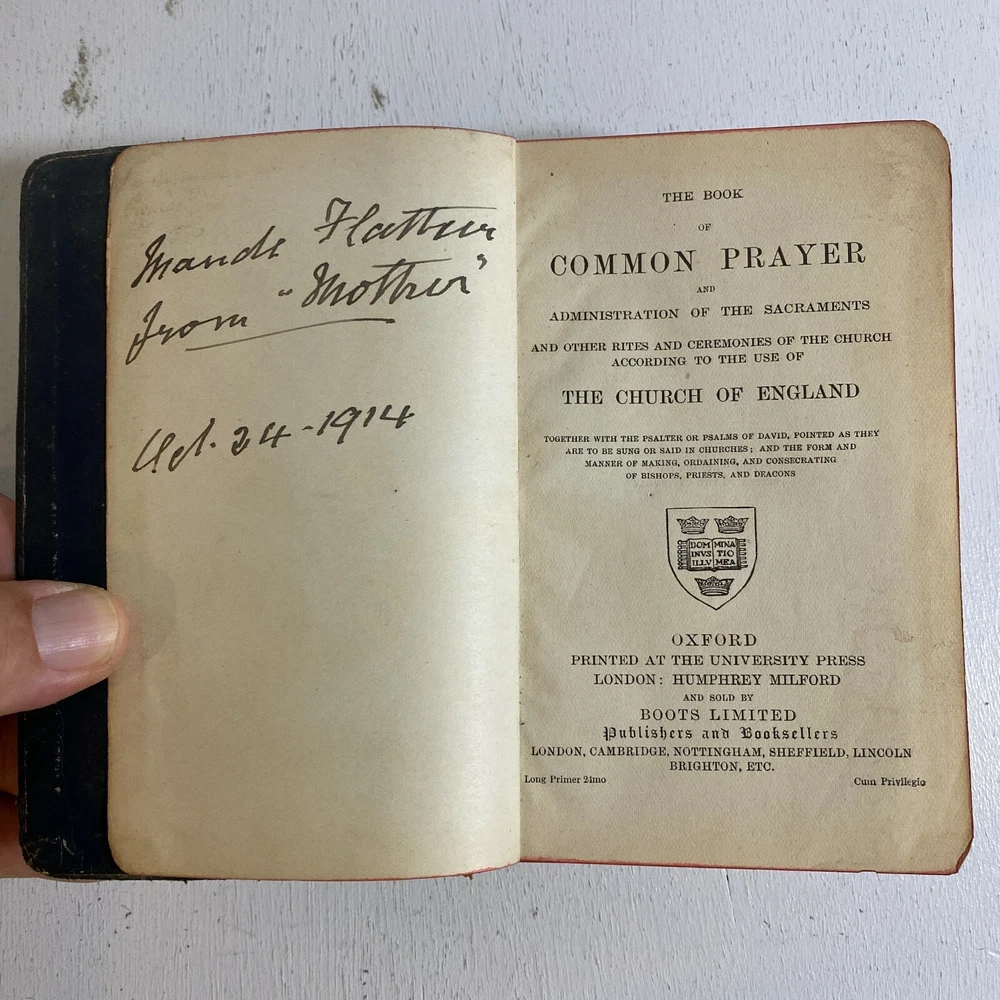 Maude Flatture
from "Mother"
Oct. 24 - 1914
THE BOOK
OF
COMMON PRAYER
AND
ADMINISTRATION OF THE SACRAMENTS
AND OTHER RITES AND CEREMONIES OF THE CHURCH
ACCORDING TO THE USE OF
THE CHURCH OF ENGLAND
TOGETHER WITH THE PSALTER OR PSALMS OF DAVID, POINTED AS THEY
ARE TO BE SUNG OR SAID IN CHURCHES; AND THE FORM AND
MANNER OF MAKING, ORDAINING, AND CONSECRATING
OF BISHOPS, PRIESTS, AND DEACONS
DOM MINA
INVS TIO
ILLV MEA
OXFORD
PRINTED AT THE UNIVERSITY PRESS
LONDON: HUMPHREY MILFORD
AND SOLD BY
BOOTS LIMITED
Publishers and Booksellers
LONDON, CAMBRIDGE, NOTTINGHAM, SHEFFIELD, LINCOLN
BRIGHTON, ETC.
Long Primer 24mo Cum Privilegio